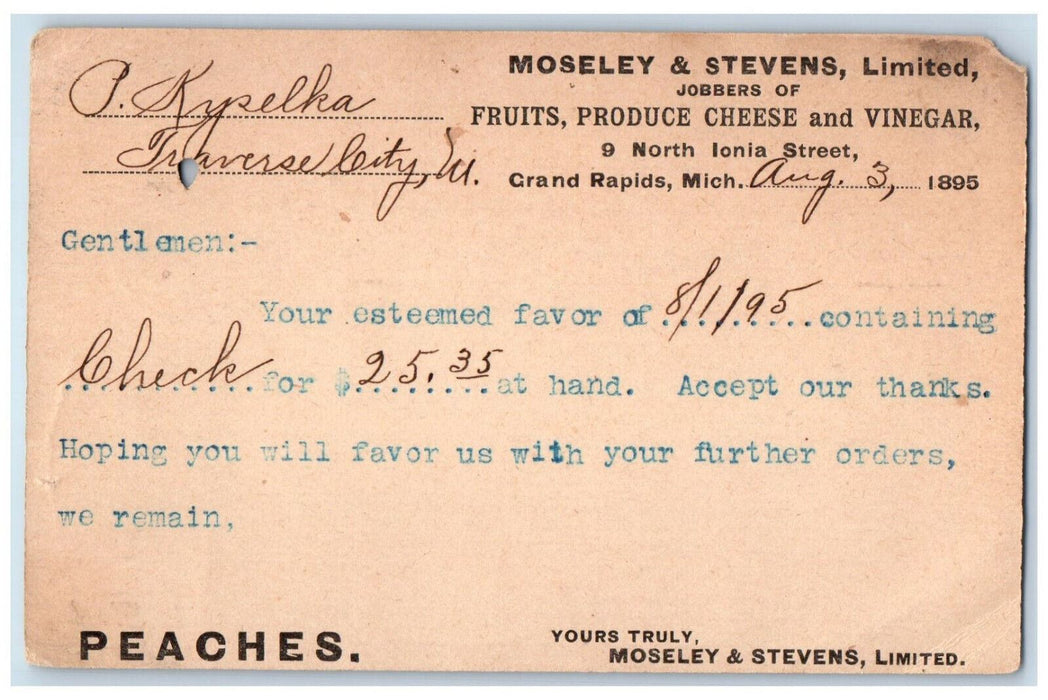 P. Kyselka
Traverse City, M.
MOSELEY & STEVENS, Limited,
JOBBERS OF
FRUITS, PRODUCE CHEESE and VINEGAR,
9 North Ionia Street,
Grand Rapids, Mich. Aug. 3, 1895
Gentlemen:-
Your esteemed favor of 8/1/95 containing
Check for $ 25.35 at hand. Accept our thanks.
Hoping you will favor us with your further orders,
we remain,
PEACHES.
YOURS TRULY,
MOSELEY & STEVENS, LIMITED.